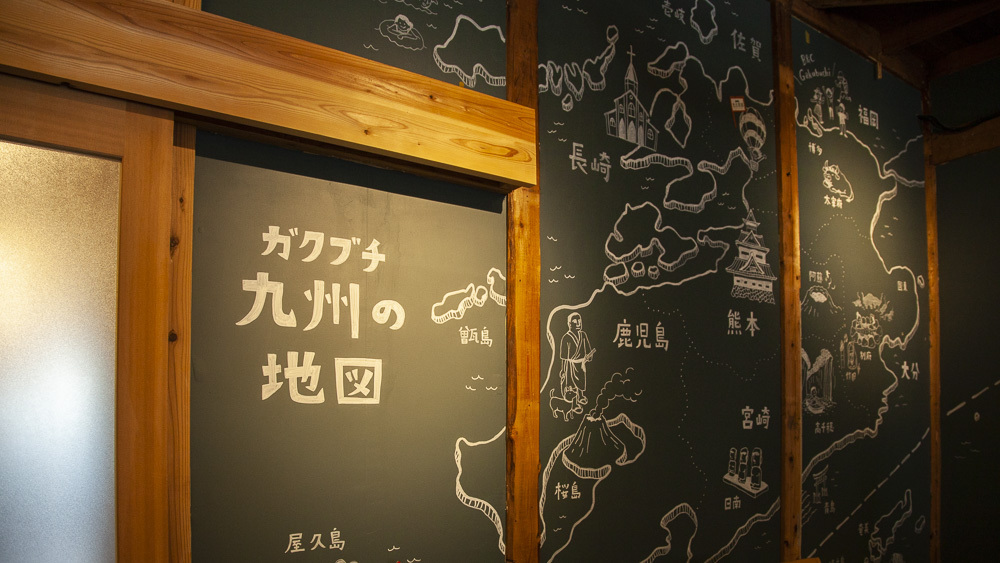 ガクブチ
九州の
地図
甑島
屋久島
壱岐
佐賀
長崎
鹿児島
熊本
桜島
宮崎
日南
福岡
博多
太宰府
阿蘇
別府
大分
高千穂